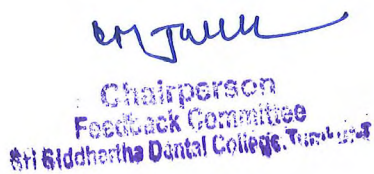 Chairperson
Feedback Committee
Sri Siddhartha Dental College,